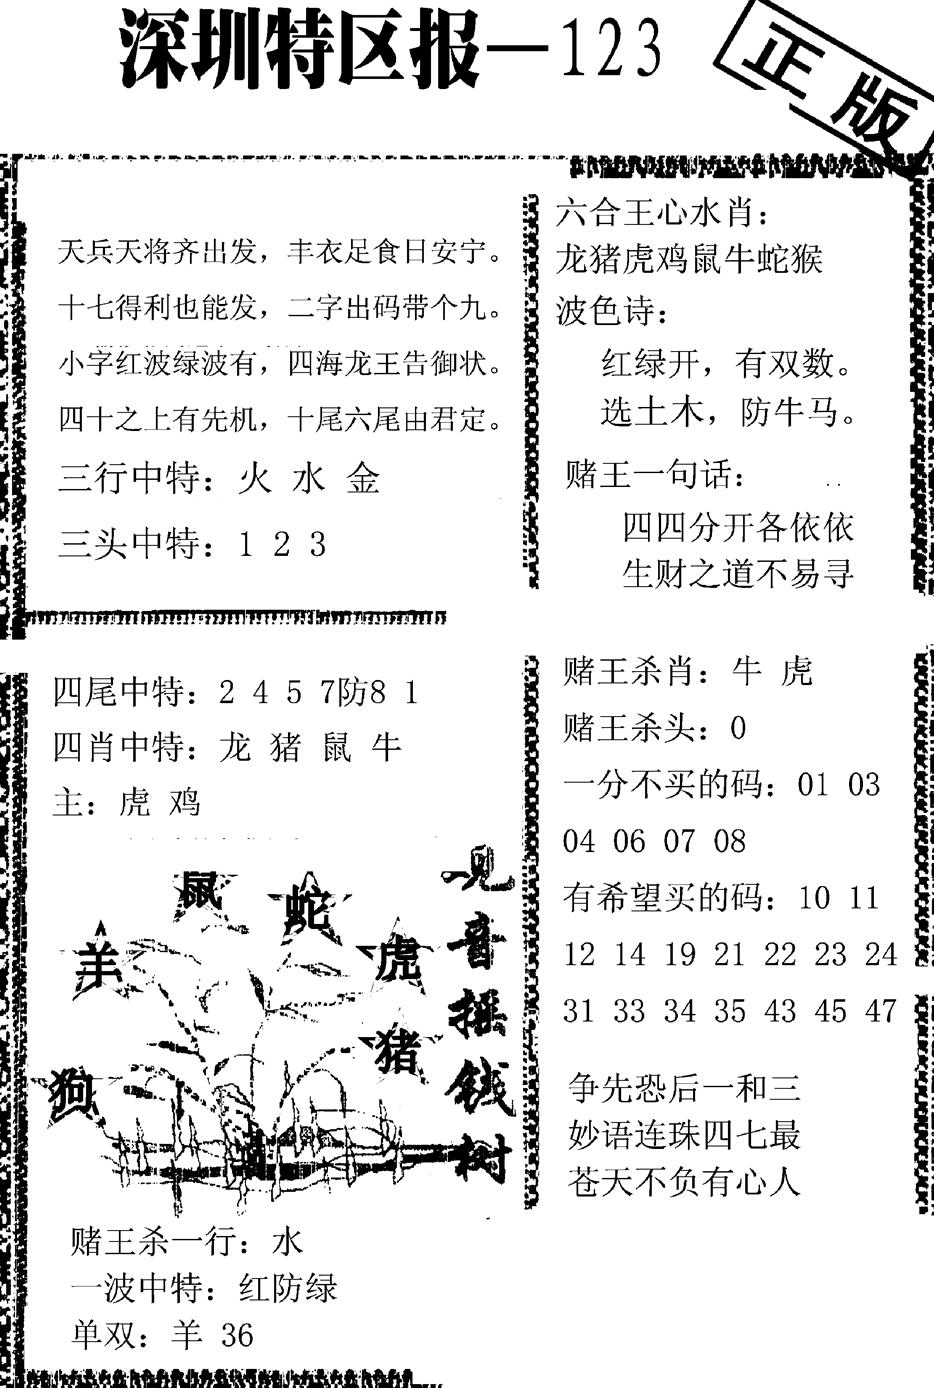 深圳特区报—123
正版
天兵天将齐出发，丰衣足食日安宁。
十七得利也能发，二字出码带个九。
小字红波绿波有，四海龙王告御状。
四十之上有先机，十尾六尾由君定。
三行中特：火 水 金
三头中特：1 2 3
六合王心水肖：
龙猪虎鸡鼠牛蛇猴
波色诗：
红绿开，有双数。
选土木，防牛马。
赌王一句话：
四四分开各依依
生财之道不易寻
四尾中特：2 4 5 7防8 1
四肖中特：龙 猪 鼠 牛
主：虎 鸡
鼠
蛇
羊
虎
猪
狗
观音摇钱树
赌王杀一行：水
一波中特：红防绿
单双：羊 36
赌王杀肖：牛 虎
赌王杀头：0
一分不买的码：01 03
04 06 07 08
有希望买的码：10 11
12 14 19 21 22 23 24
31 33 34 35 43 45 47
争先恐后一和三
妙语连珠四七最
苍天不负有心人